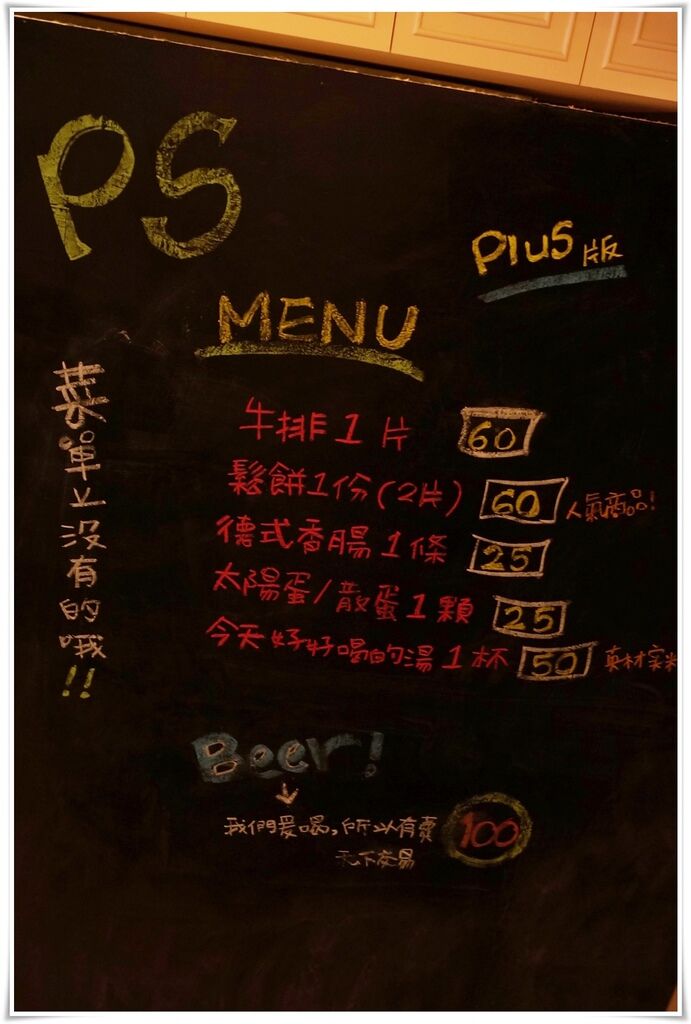 PS
Plus版
MENU
菜單上沒有的哦!!
牛排1片 60
鬆餅1份(2片) 60 人氣商品!
德式香腸1條 25
太陽蛋/散蛋1顆 25
今天好好喝的湯1杯 50 真材實料
Beer!
↓
我們愛喝,所以有賣 100